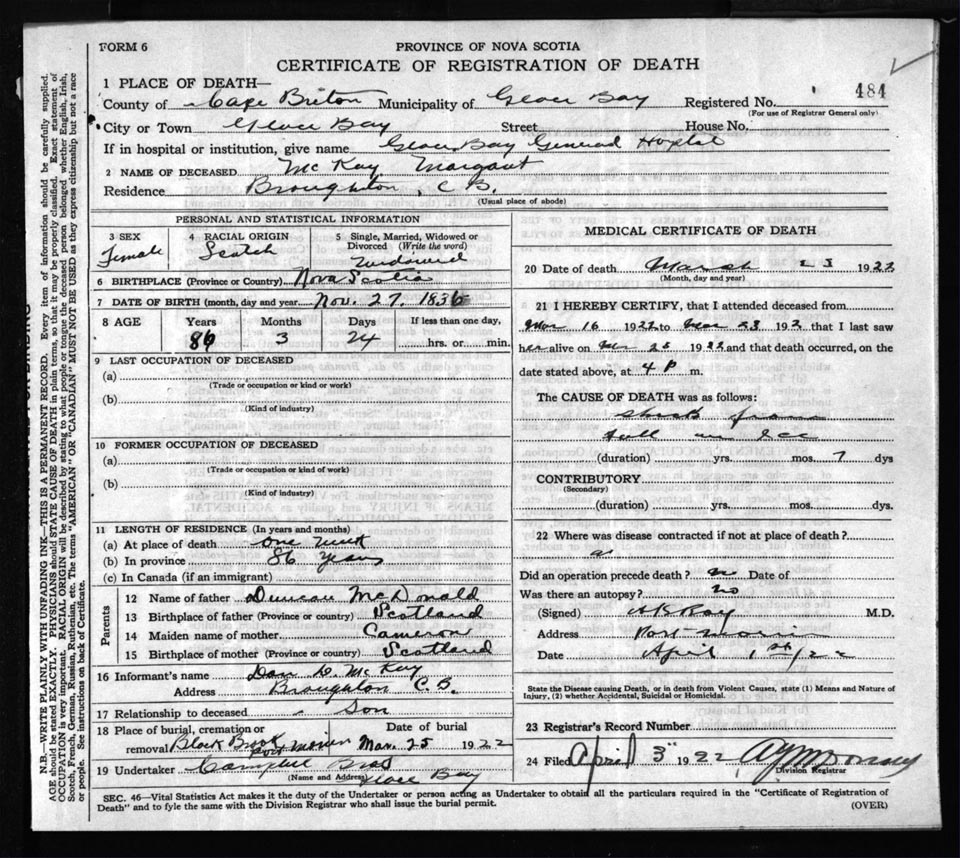 FORM 6
PROVINCE OF NOVA SCOTIA
CERTIFICATE OF REGISTRATION OF DEATH
1 PLACE OF DEATH—
484
County of Cape Breton Municipality of Glace Bay Registered No.
(For use of Registrar General only)
City or Town Glace Bay Street House No.
If in hospital or institution, give name Glace Bay General Hospital
2 NAME OF DECEASED McKay Margaret
Residence Broughton, C. B.
(Usual place of abode)
PERSONAL AND STATISTICAL INFORMATION
3 SEX
Female
4 RACIAL ORIGIN
Scotch
5 Single, Married, Widowed or Divorced (Write the word)
Widowed
6 BIRTHPLACE (Province or Country) Nova Scotia
7 DATE OF BIRTH (month, day and year) Nov. 27. 1836
8 AGE Years Months Days If less than one day,
86 3 24 hrs. or min.
9 LAST OCCUPATION OF DECEASED
(a)
(Trade or occupation or kind of work)
(b)
(Kind of industry)
10 FORMER OCCUPATION OF DECEASED
(a)
(Trade or occupation or kind of work)
(b)
(Kind of industry)
11 LENGTH OF RESIDENCE (In years and months)
(a) At place of death one week
(b) In province 86 years
(c) In Canada (if an immigrant)
Parents
12 Name of father Duncan McDonald
13 Birthplace of father (Province or country) Scotland
14 Maiden name of mother Cameron
15 Birthplace of mother (Province or country) Scotland
16 Informant's name Dan D. McKay
Address Broughton C. B.
17 Relationship to deceased Son
18 Place of burial, cremation or removal Black Brook Port Morien
Date of burial Mar. 25 1922
19 Undertaker Campbell Bros
(Name and Address) Glace Bay
MEDICAL CERTIFICATE OF DEATH
20 Date of death March 23 1922
(Month, day and year)
21 I HEREBY CERTIFY, that I attended deceased from
Mar 16 1922 to Mar 23 192 that I last saw
her alive on 1922 and that death occurred, on the
date stated above, at 4 P m.
The CAUSE OF DEATH was as follows:
shock from
fall on ice
(duration) yrs. mos. 7 dys
CONTRIBUTORY
(Secondary)
(duration) yrs. mos. dys.
22 Where was disease contracted if not at place of death?
Did an operation precede death? no Date of
Was there an autopsy? no
(Signed) M.D.
Address Port Morien
Date April 1st/22
State the Disease causing Death, or in death from Violent Causes, state (1) Means and Nature of
Injury, (2) whether Accidental, Suicidal or Homicidal.
23 Registrar's Record Number
24 Filed April 3" 1922
Division Registrar
SEC. 46—Vital Statistics Act makes it the duty of the Undertaker or person acting as Undertaker to obtain all the particulars required in the "Certificate of Registration of
Death" and to fyle the same with the Division Registrar who shall issue the burial permit.
(OVER)
N.B.—WRITE PLAINLY WITH UNFADING INK—THIS IS A PERMANENT RECORD. Every item of information should be carefully supplied.
AGE should be stated EXACTLY. PHYSICIANS should STATE CAUSE OF DEATH in plain terms, so that it may be properly classified. Exact statement of
OCCUPATION is very important. RACIAL ORIGIN will be described by stating to what people or tongue the deceased person belonged whether English, Irish,
Scotch, French, German, Russian, Ruthenian, etc. The terms "AMERICAN" OR "CANADIAN" MUST NOT BE USED as they express citizenship but not a race
or people. See instructions on back of Certificate.